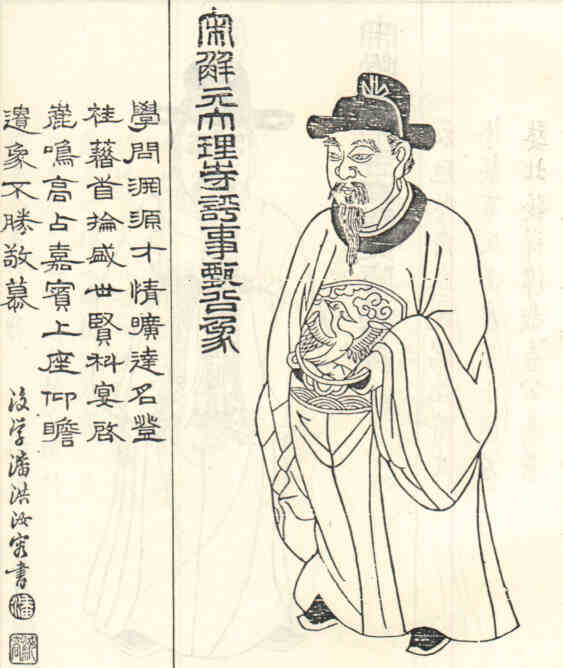 宋解元大理寺評事甄公象
學問淵源才情曠達名登
桂藉首掄盛世賢科宴啓
鹿鳴高占嘉賓上座仰瞻
遺象不勝敬慕
後学潘洪汝書
潘